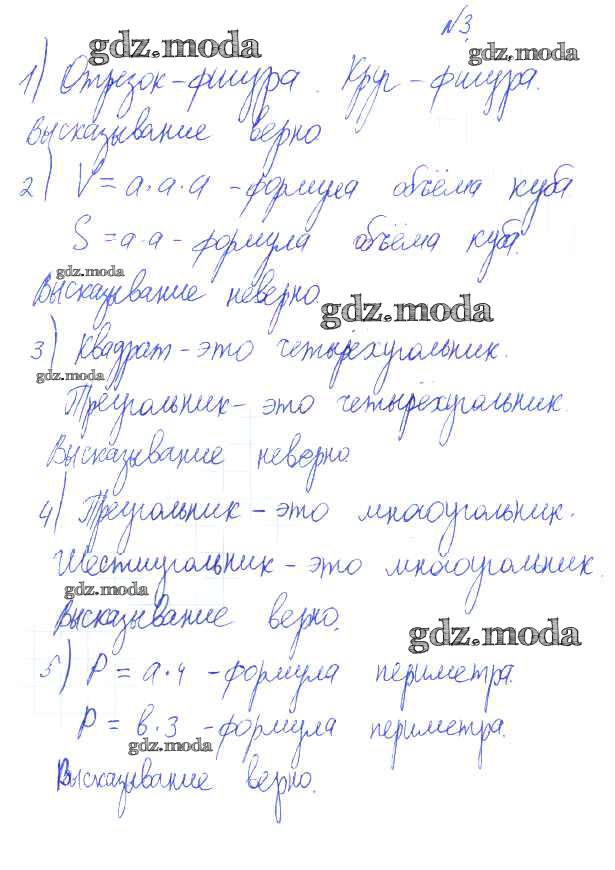 №3.
gdz.moda
gdz.moda
1) Отрезок-фигура. Круг-фигура.
Высказывание верно
2) V=a·a·a -формула объёма куба
S=a·a- формула объёма куба.
gdz.moda
Высказывание неверно.
gdz.moda
3) Квадрат-это четырёхугольник.
gdz.moda
Треугольник- это четырёхугольник.
Высказывание неверно
4) Треугольник-это многоугольник.
Шестиугольник-это многоугольник.
gdz.moda
Высказывание верно.
gdz.moda
5) P=a·4 -формула периметра.
P=b·3 -формула периметра.
gdz.moda
Высказывание верно.